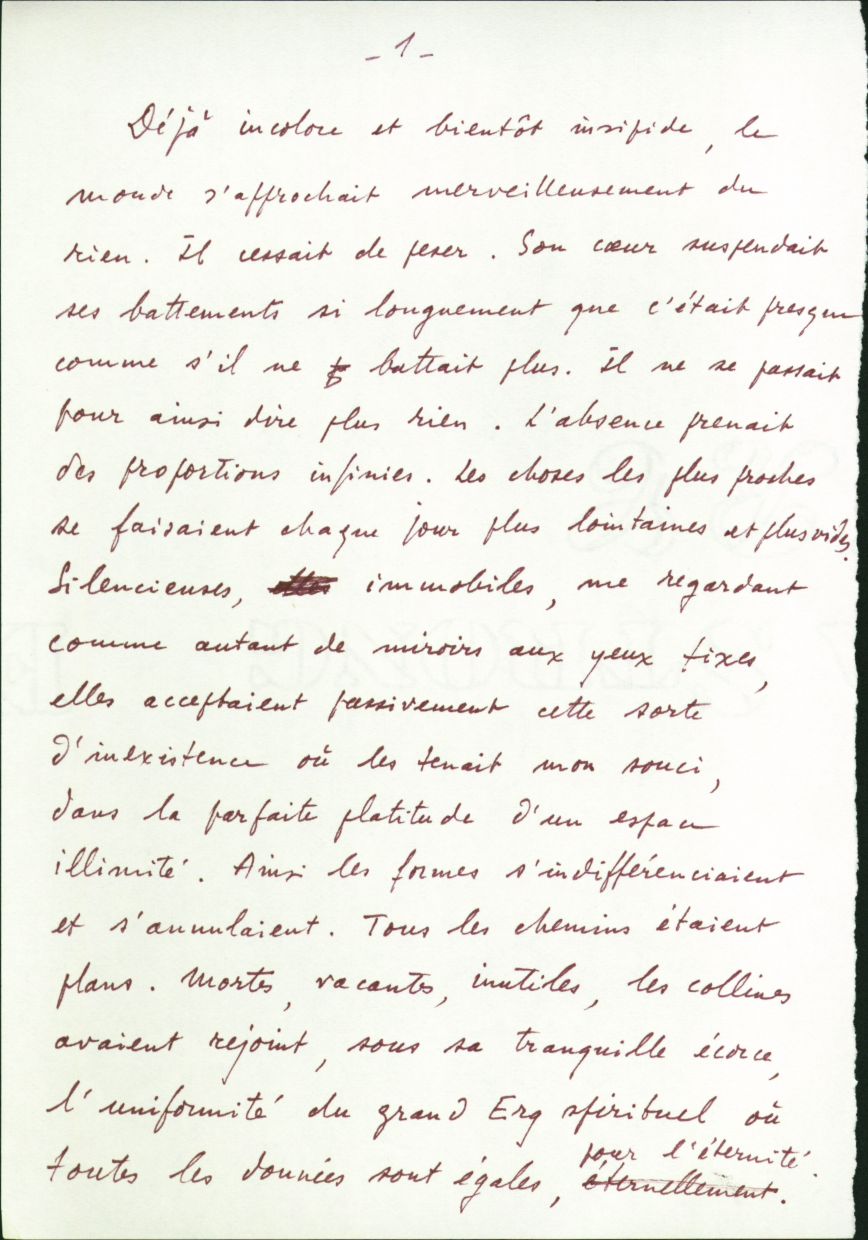 - 1 -
Déjà incolore et bientôt insipide, le
monde s'approchait merveilleusement du
rien. Il cessait de peser. Son cœur suspendait
ses battements si longuement que c'était presque
comme s'il ne battait plus. Il ne se passait
pour ainsi dire plus rien. L'absence prenait
des proportions infinies. Les choses les plus proches
se faisaient chaque jour plus lointaines et plus vides.
Silencieuses, elles immobiles, me regardant
comme autant de miroirs aux yeux fixes,
elles acceptaient passivement cette sorte
d'inexistence où les tenait mon souci,
dans la parfaite platitude d'un espace
illimité. Ainsi les formes s'indifférenciaient
et s'annulaient. Tous les chemins étaient
plans. Mortes, vacantes, inutiles, les collines
avaient rejoint, sous sa tranquille écorce,
l'uniformité du grand Erg spirituel où
pour l'éternité.
toutes les données sont égales, éternellement.